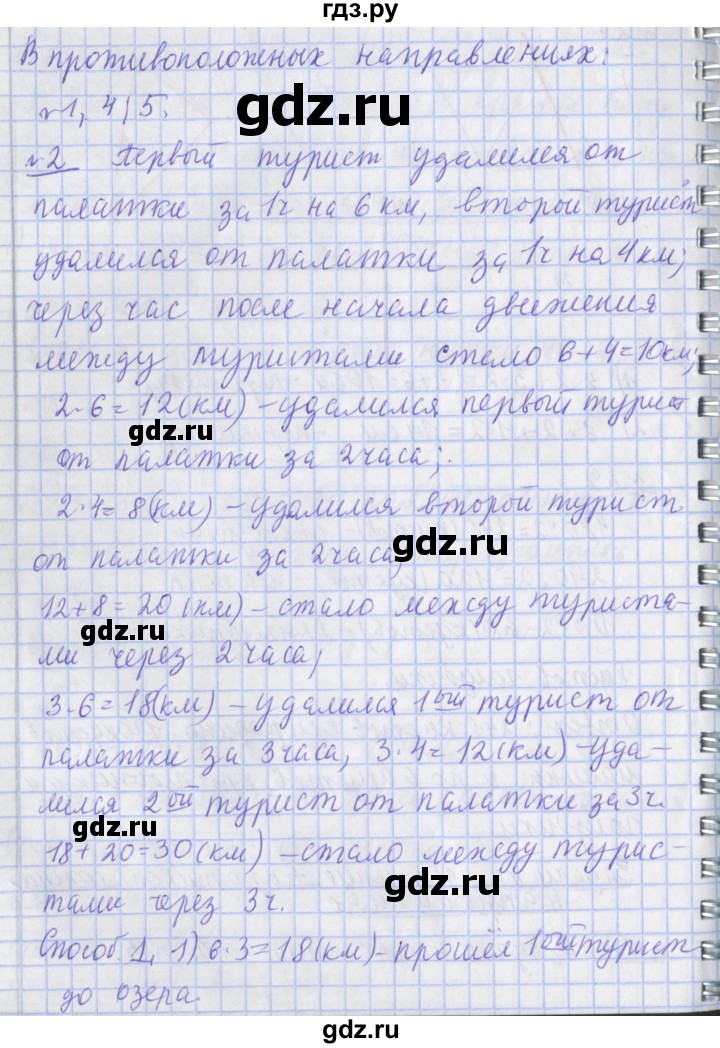 гдз.ру
В противоположных направлениях:
№1, 4 | 5.
gdz.ru
№2 Первый турист удалился от
палатки за 1ч на 6 км, второй турист
удалился от палатки за 1ч на 4км;
через час после начала движения
между туристами стало 6+4=10км;
2·6=12(км) – удалился первый турист
gdz.ru
от палатки за 2часа;
2·4=8(км) – удалился второй турист
от палатки за 2часа;
gdz.ru
12+8=20(км) – стало между туриста-
gdz.ru
ми через 2 часа;
3·6=18(км) – удалился 1ый турист от
палатки за 3часа, 3·4=12(км) – уда-
лился 2ой турист от палатки за 3ч.
gdz.ru
18+20=30(км) – стало между турис-
gdz.ru
тами через 3ч.
Способ 1, 1) 6·3=18(км) – прошёл 1ый турист
до озера.
gdz.ru